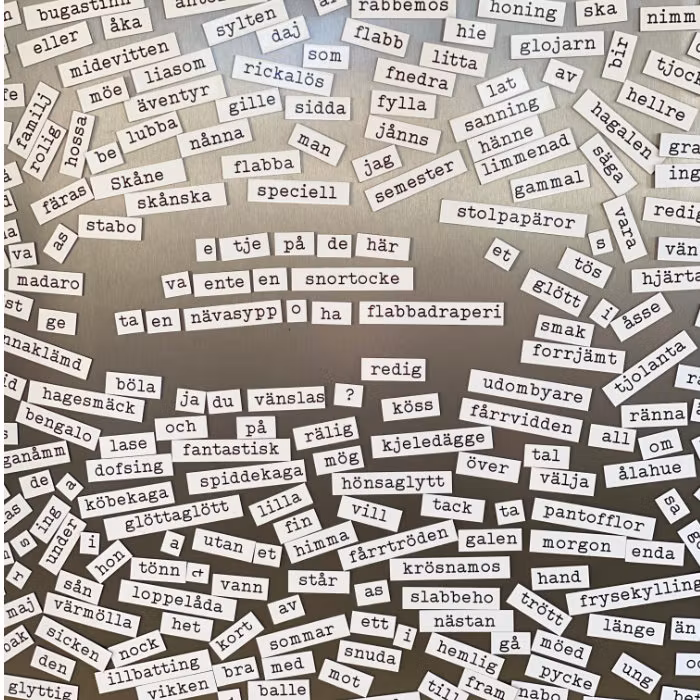 bugastinn
rabbemos
honing
ska
nimm
eller
åka
sylten
daj
flabb
hie
glojarn
bir
tjock
midevitten
liasom
som
litta
möe
äventyr
rickalös
fnedra
lat
av
hellre
familj
gille
sidda
fylla
sanning
hagalen
rolig
hossa
lubba
nånna
man
jånns
hänne
be
jag
limmenad
säga
Skåne
flabba
semester
gammal
färas
skånska
speciell
stolpapäror
vara
redig
stabo
as
va
e tje på de här
et
s
tös
vän
madaro
va ente en snortocke
glött
i
åsse
hjärta
st
ge
ta en nävasypp o ha flabbadraperi
smak
nnaklämd
redig
forrjämt
tjolanta
böla
hagesmäck
ja du vänslas ?
köss
udombyare
fårrvidden
ränna
bengalo
och
på
rälig
kjeledägge
all
om
lase
fantastisk
tal
ganåmm
dofsing
mög
över
välja
ålahue
de
a
spiddekaga
hönsaglytt
köbekaga
lilla
vill
tack
ta
pantofflor
sa
as
ing
glöttaglött
fin
s
under
i
a
utan
et
himma
fårrtröden
galen
morgon
enda
hon
tönn
står
krösnamos
hand
r
sån
loppelåda
vann
as
slabbeho
trött
frysekylling
maj
värmölla
het
av
ett
i
nästan
länge
än
bak
sicken
nock
kort
sommar
snuda
gå
möed
den
illbatting
bra
med
hemlig
pycke
ung
glyttig
vikken
balle
mot
fram
nabo